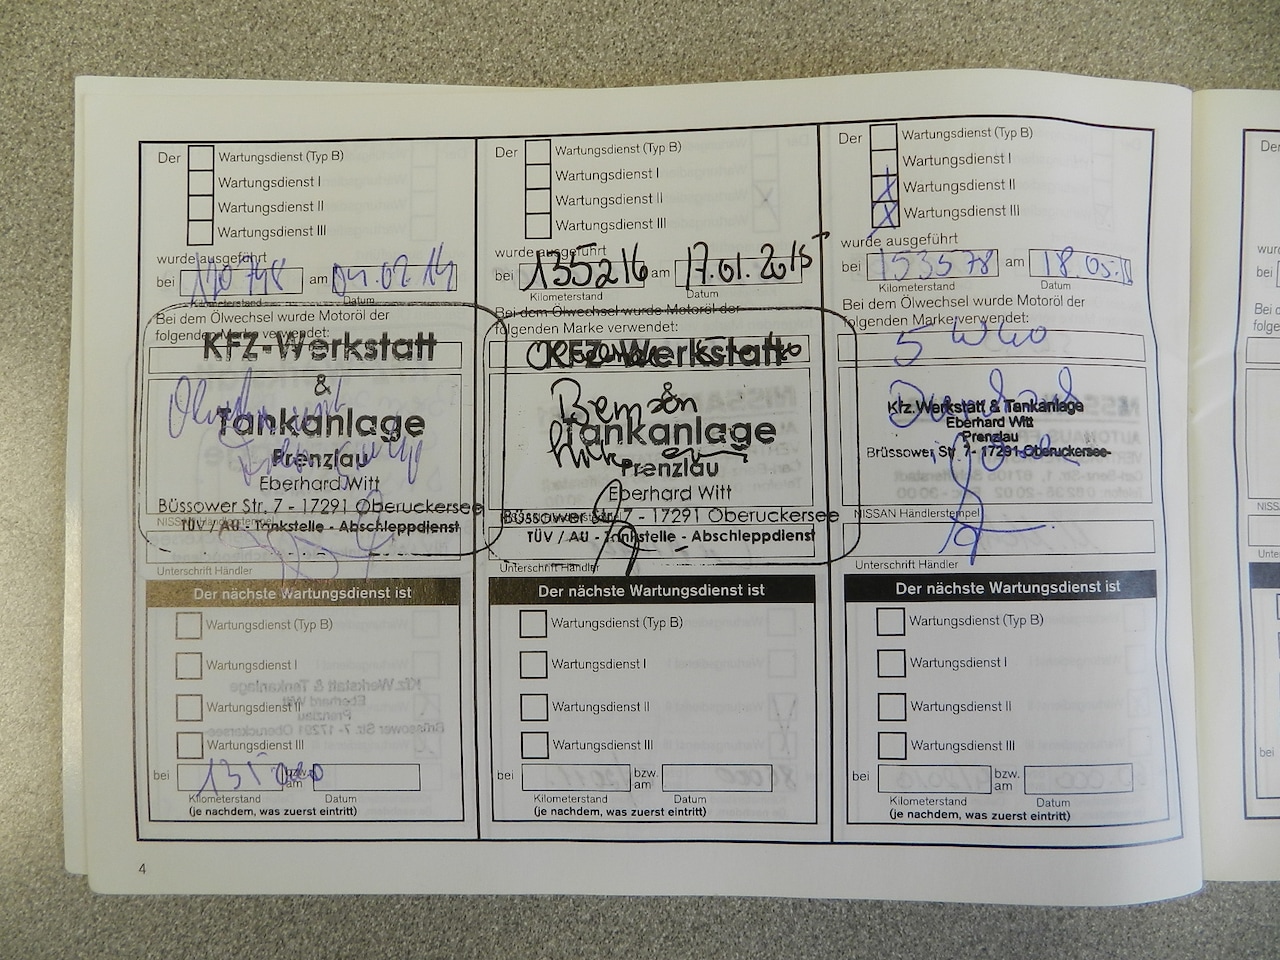 Der Wartungsdienst (Typ B)
Wartungsdienst I
Wartungsdienst II
Wartungsdienst III
wurde ausgeführt
bei am 04.02.14
Kilometerstand Datum
Bei dem Ölwechsel wurde Motoröl der
folgenden Marke verwendet:
KFZ-Werkstatt
&
Tankanlage
Prenzlau
Eberhard Witt
Büssower Str. 7 - 17291 Oberuckersee
NISSAN Händlerstempel
TÜV / AU - Tankstelle - Abschleppdienst
Unterschrift Händler
Der nächste Wartungsdienst ist
Wartungsdienst (Typ B)
Wartungsdienst I
Wartungsdienst II
Wartungsdienst III
bei 135000 bzw. am
Kilometerstand Datum
(je nachdem, was zuerst eintritt)
4
Der Wartungsdienst (Typ B)
Wartungsdienst I
Wartungsdienst II
Wartungsdienst III
wurde ausgeführt
bei 135216 am 17.01.2015
Kilometerstand Datum
Bei dem Ölwechsel wurde Motoröl der
folgenden Marke verwendet:
KFZ-Werkstatt
&
Tankanlage
Prenzlau
Eberhard Witt
Büssower Str. 7 - 17291 Oberuckersee
TÜV / AU - Tankstelle - Abschleppdienst
Unterschrift Händler
Der nächste Wartungsdienst ist
Wartungsdienst (Typ B)
Wartungsdienst I
Wartungsdienst II
Wartungsdienst III
bei bzw. am
Kilometerstand Datum
(je nachdem, was zuerst eintritt)
Der Wartungsdienst (Typ B)
Wartungsdienst I
X Wartungsdienst II
X Wartungsdienst III
wurde ausgeführt
bei 153578 am 18.05.
Kilometerstand Datum
Bei dem Ölwechsel wurde Motoröl der
folgenden Marke verwendet:
5W40
Kfz.Werkstatt & Tankanlage
Eberhard Witt
Prenzlau
Brüssower Str. 7- 17291 Oberuckersee-
NISSAN Händlerstempel
Unterschrift Händler
Der nächste Wartungsdienst ist
Wartungsdienst (Typ B)
Wartungsdienst I
Wartungsdienst II
Wartungsdienst III
bei bzw. am
Kilometerstand Datum
(je nachdem, was zuerst eintritt)